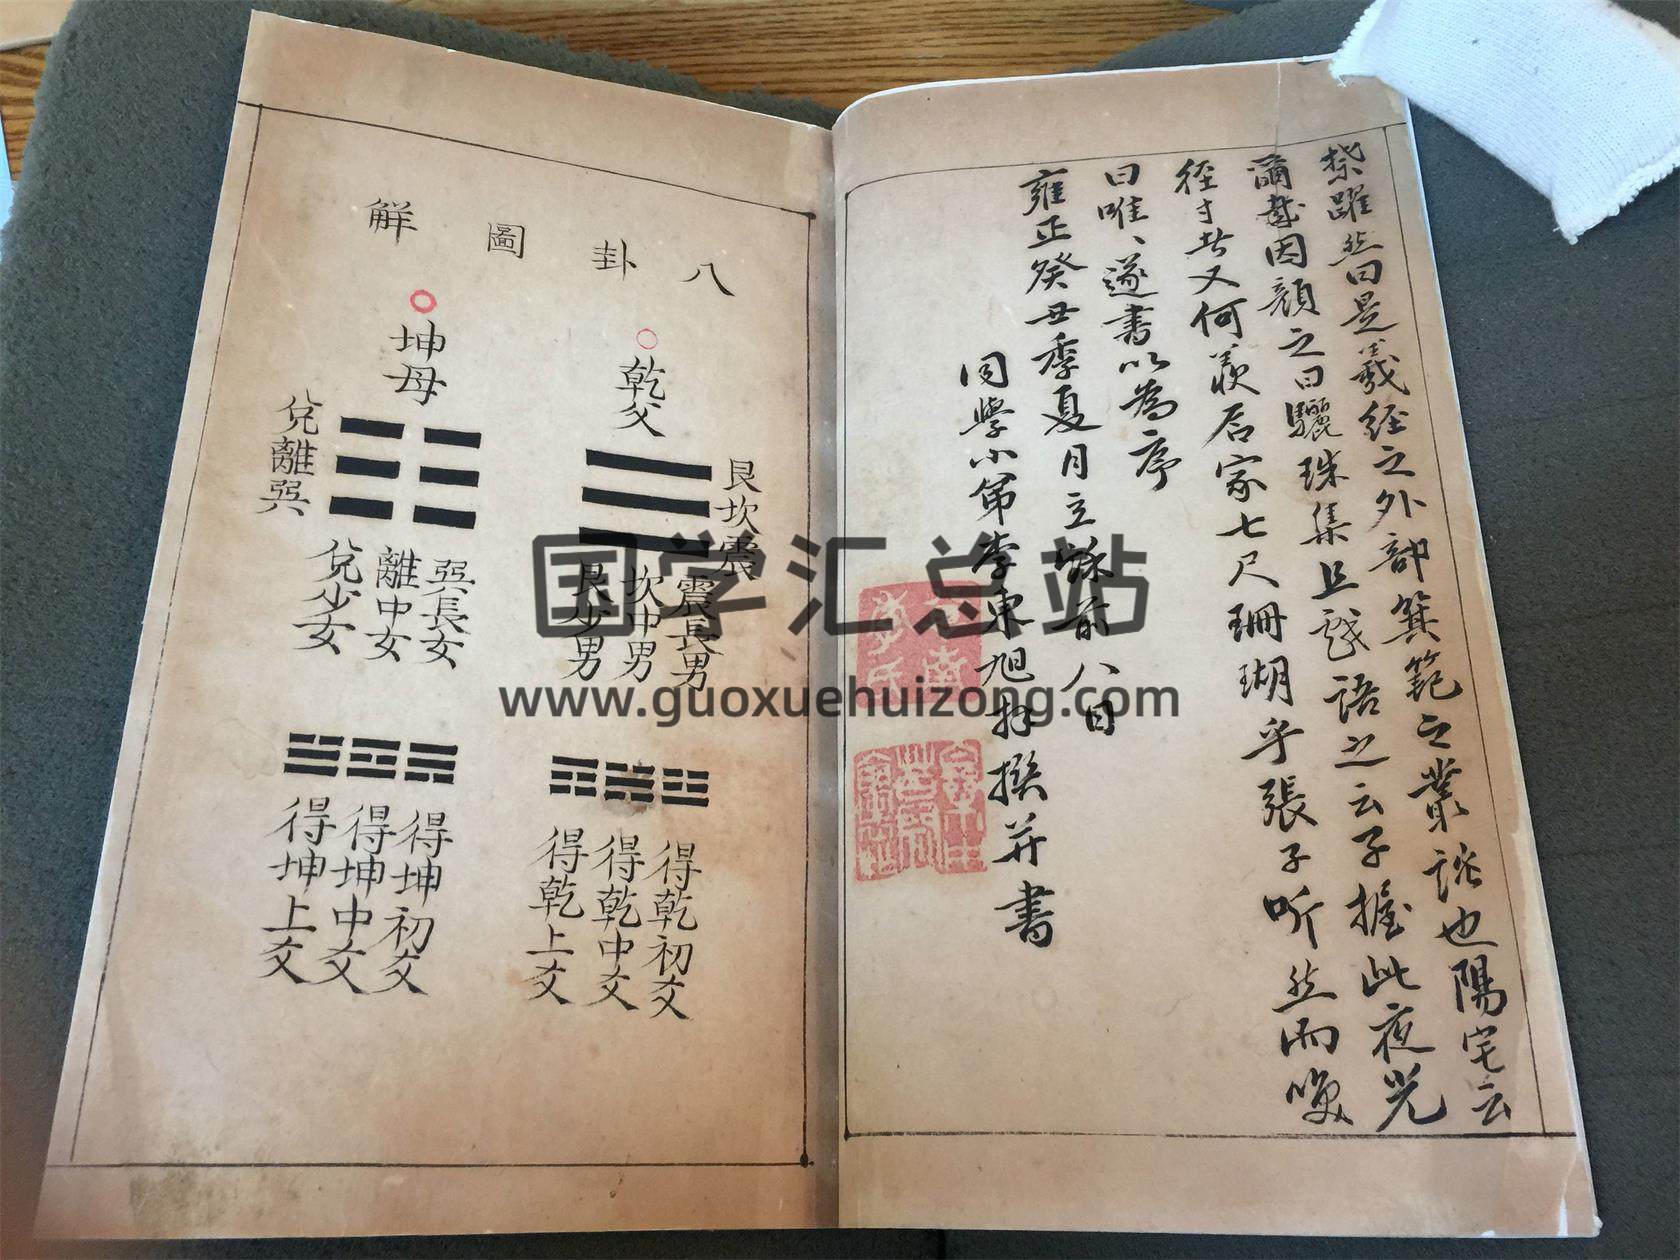 躍然曰是羲經之外部箕範之叢談也陽宅云
爾哉因顏之曰驪珠集且戲語之云子握此夜光
徑寸者又何羨石家七尺珊瑚乎張子听然而
曰唯唯遂書以為序
雍正癸丑季夏月立秋前八日
同學小弟李東旭拜撰并書
八卦圖解
乾父
艮坎震
震長男
坎中男
艮少男
得乾初爻
得乾中爻
得乾上爻
坤母
兌離巽
巽長女
離中女
兌少女
得坤初爻
得坤中爻
得坤上爻
国学汇总站
www.guoxuehuizong.com